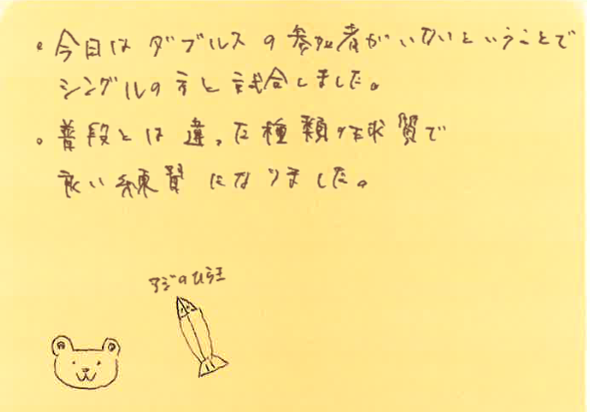 ・今日はダブルスの参加者がいないということで
シングルの方と試合しました。
・普段とは違った種類の球質で
良い練習になりました。
アジのひらき